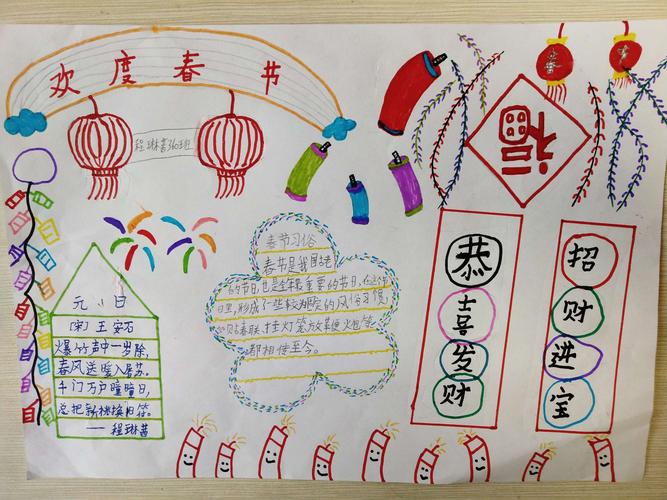 欢度春节
春
福
元 日
[宋] 王安石
爆竹声中一岁除,
春风送暖入屠苏。
千门万户曈曈日,
总把新桃换旧符。
春节习俗
春节是我国
的节日,也是
重要的节日,在这个
日里,形成了一些较为
的风俗习惯,
如贴春联、挂灯笼、放鞭炮等,
都相传至今。
恭喜发财
招财进宝